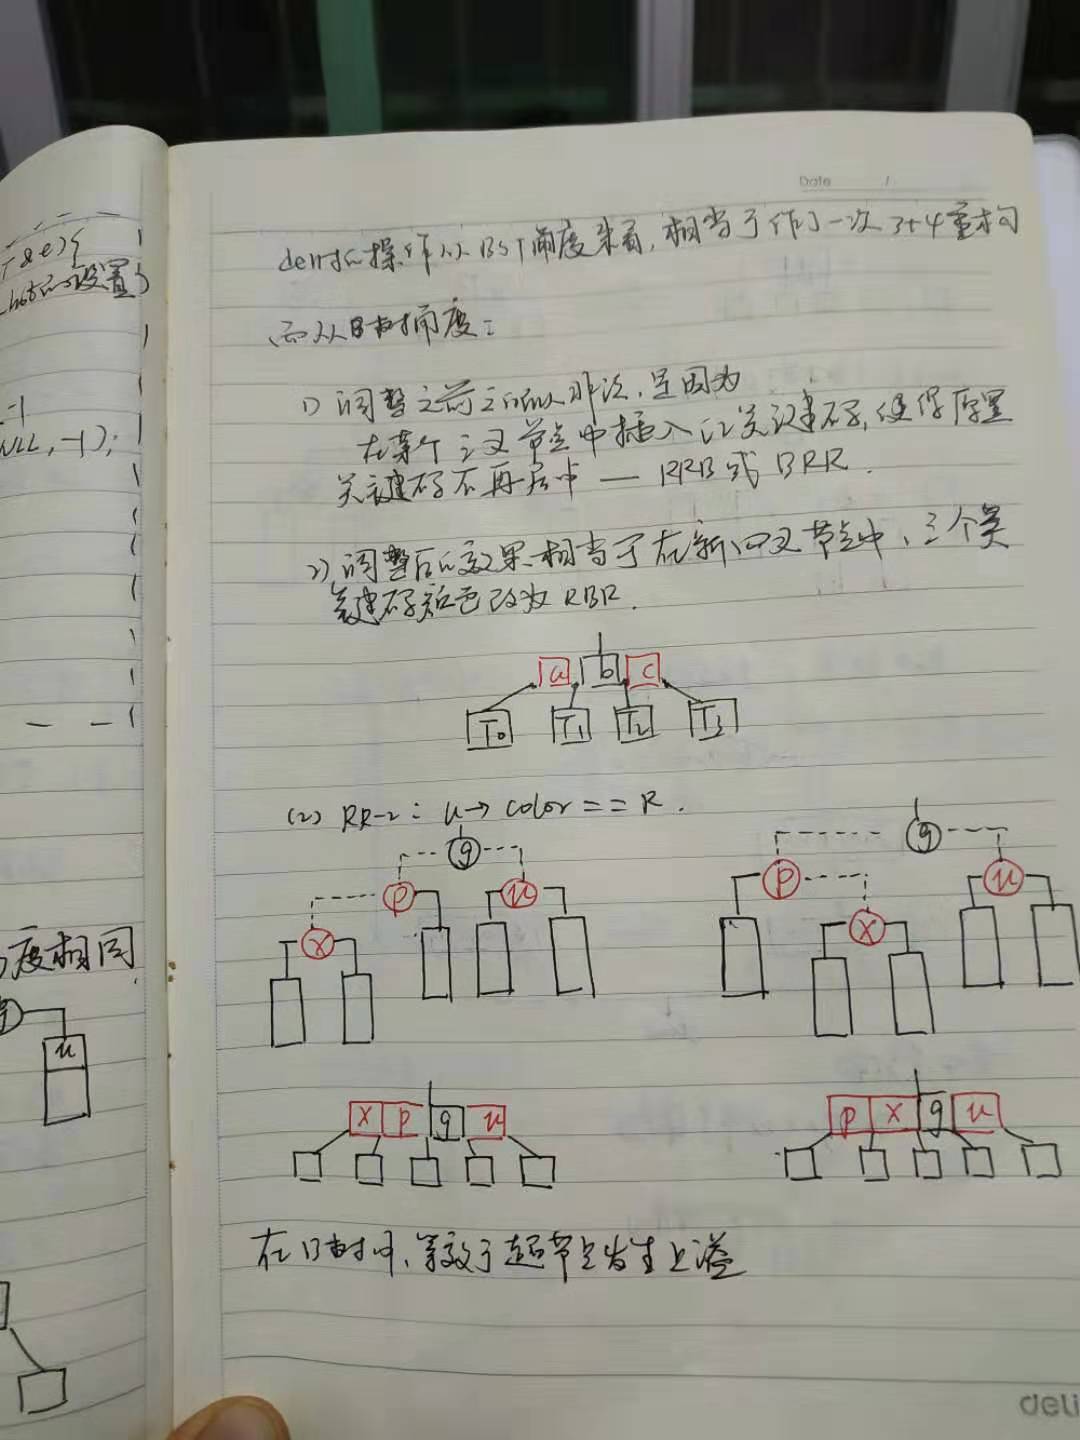 T&e){
hot的设置
=1
NULL, -1);
度相同
u
Date /
操作从BST角度来看,相当于作了一次3+4重构
而从B树角度:
1) 调整之前之所以非法,是因为
在某个三叉节点中插入红关键码,使得原黑
关键码不再居中 — RRB或BRR.
2) 调整后的效果相当于在新四叉节点中、三个关
键码颜色改为RBR.
a b c
T0 T1 T2 T3
(2) RR-2: u→color == R.
g g
p u p u
x x
x p g u p x g u
在B树中、等效于超节点发生上溢
deli